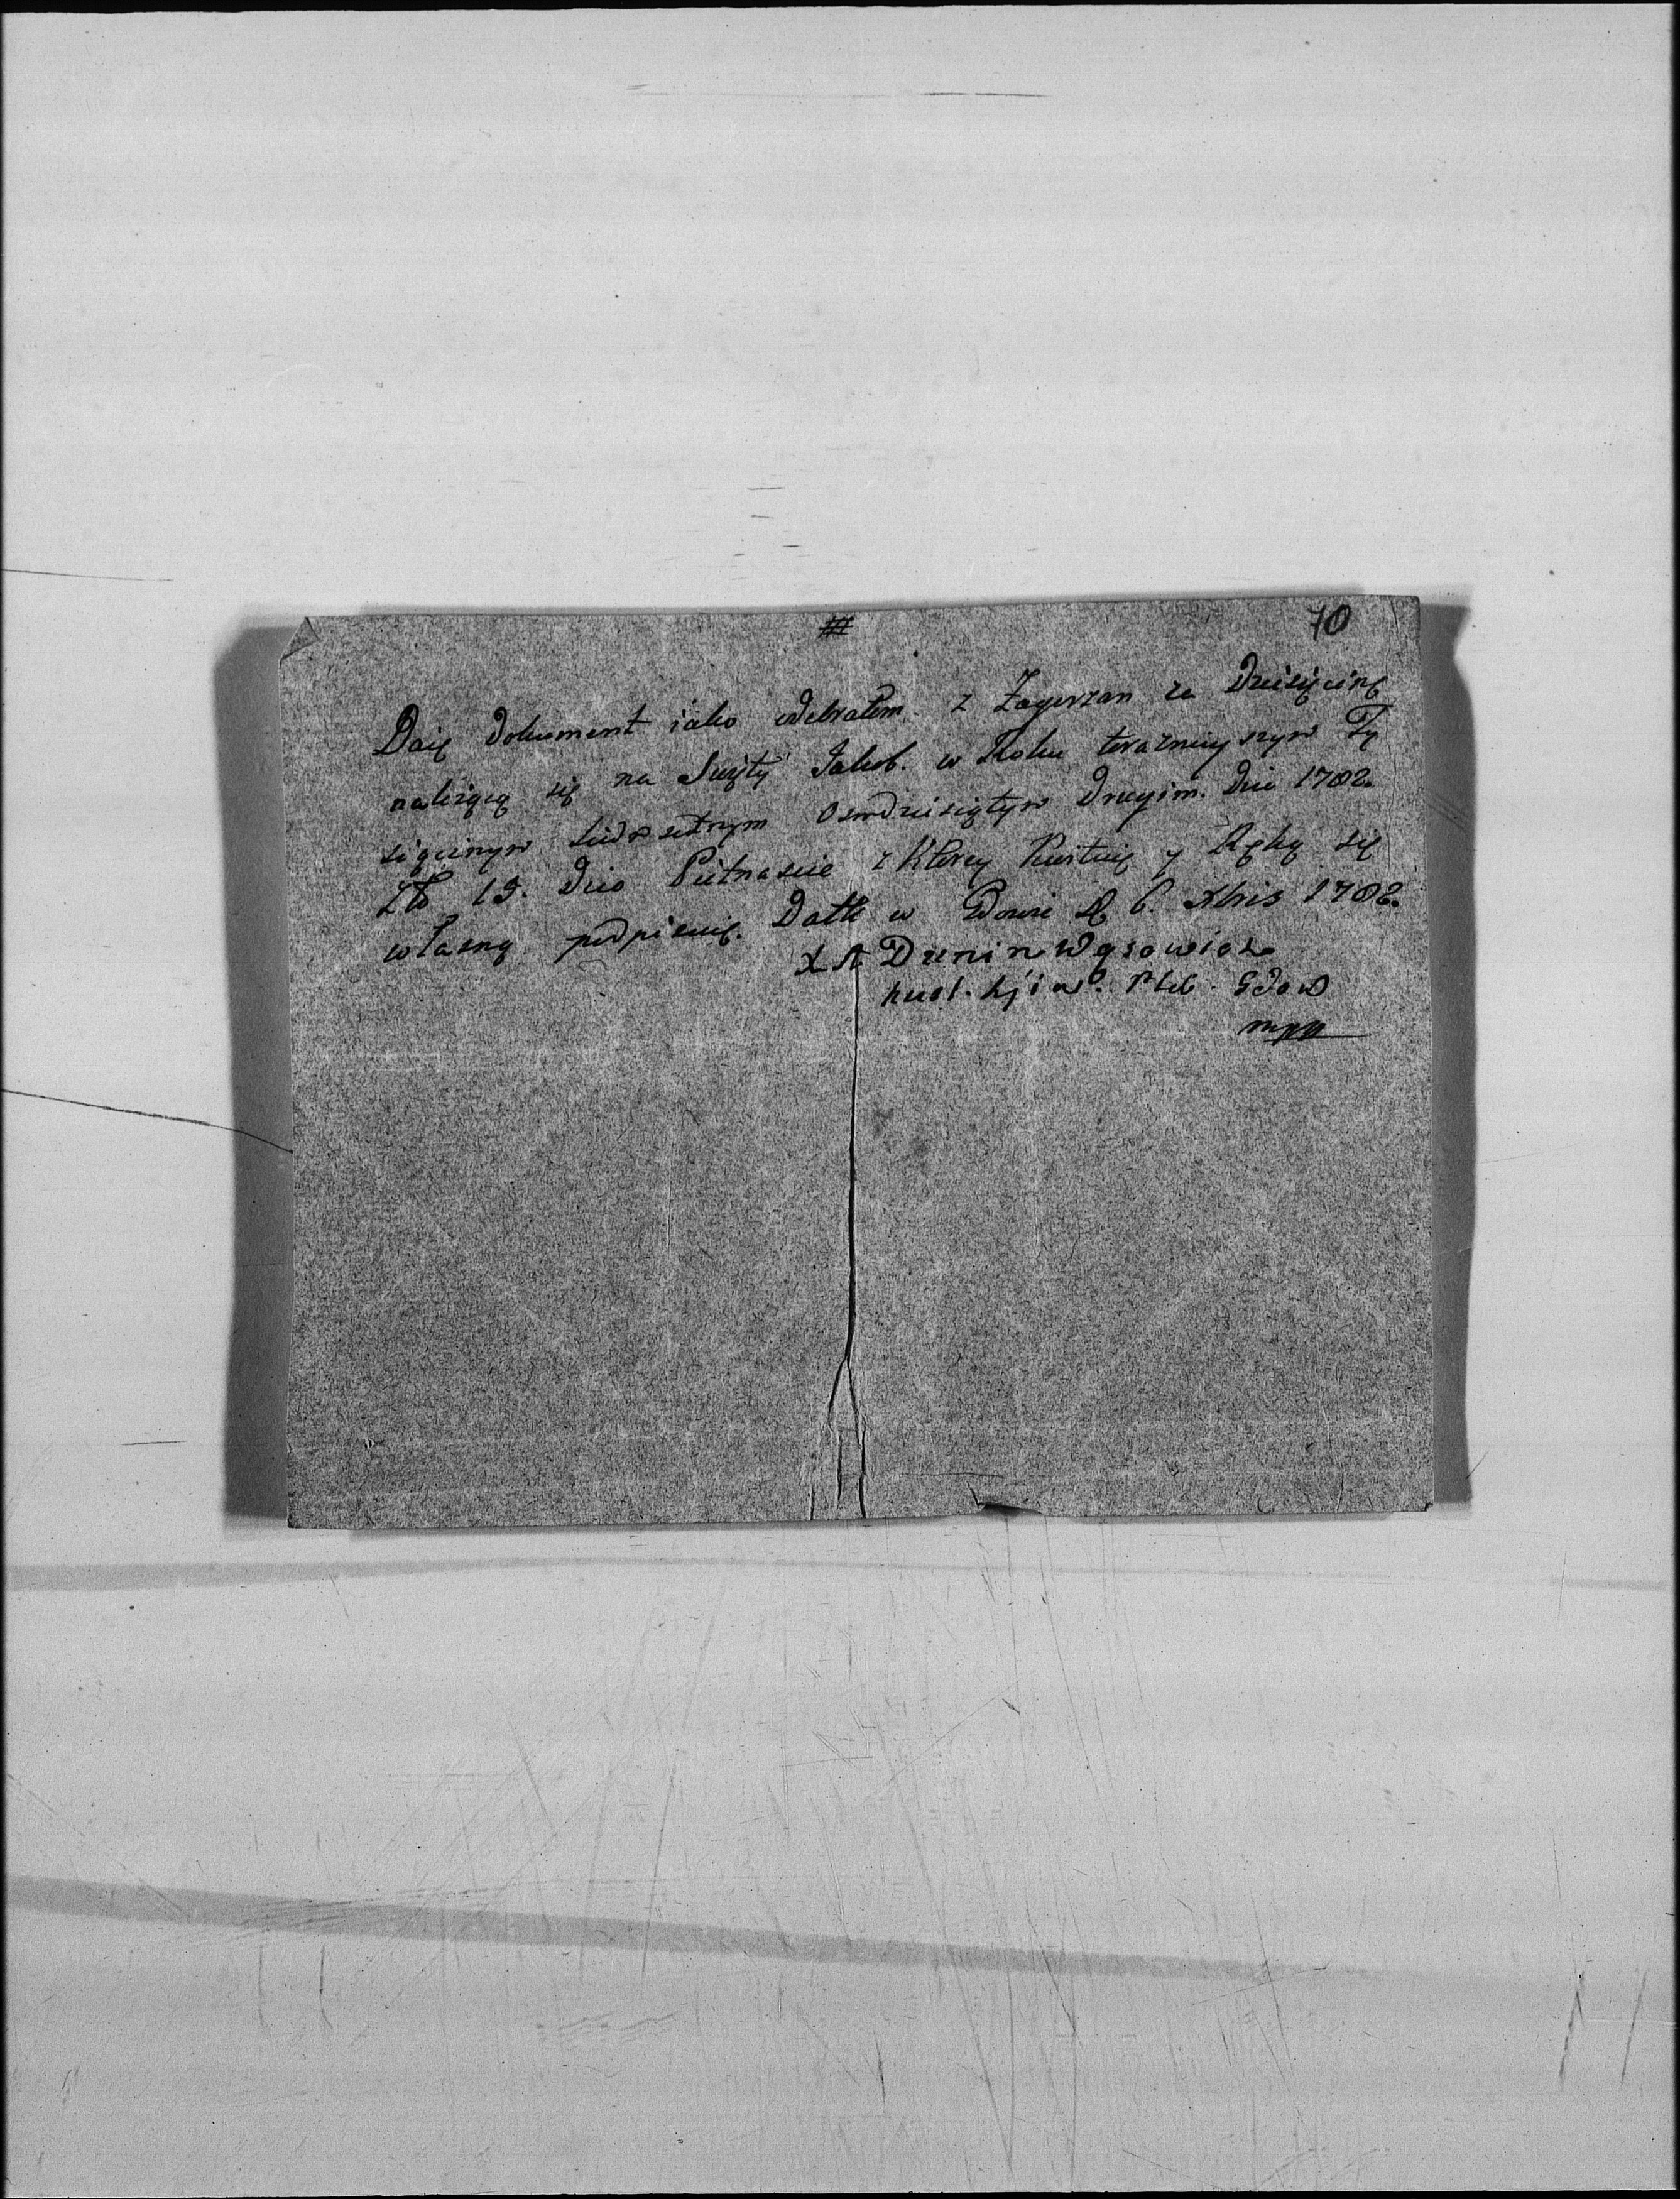 70
Daię Dokument iako odebrałem z Zagorzan za Dziesięcinę
należącą się na Święty Jakub. w Roku teraznieyszym Ty
siącznym siedmsetnym Osmdziesiątym Drugim. Dico 1782.
Zło 15. Dico Pietnascie z Ktorey Kwituię y Ręką się
własną podpisuię. Datt w Gdowie D 6. Xbris 1782.
X A Dunin Wąsowicz
Kust. Kiiow. Pleb. Gdow
mpp